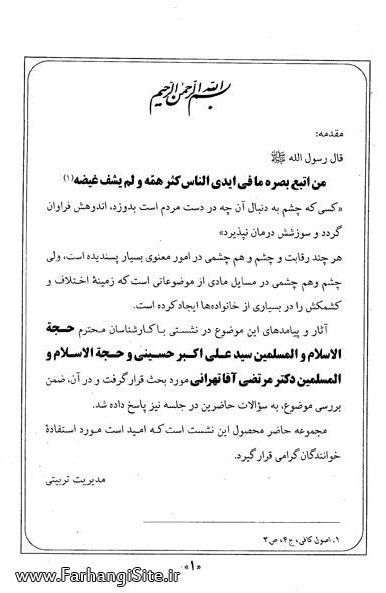 بسم الله الرحمن الرحیم
مقدمه:
قال رسول الله ﷺ
من اتبع بصره ما فی ایدی الناس کثر همّه و لم یشف غیضه(۱)
«کسی که چشم به دنبال آن چه در دست مردم است بدوزد، اندوهش فراوان
گردد و سوزشش درمان نپذیرد»
هر چند رقابت و چشم و هم چشمی در امور معنوی بسیار پسندیده است، ولی
چشم وهم چشمی در مسایل مادی از موضوعاتی است که زمینهٔ اختلاف و
کشمکش را در بسیاری از خانواده‌ها ایجاد کرده است.
آثار و پیامدهای این موضوع در نشستی با کارشناسان محترم حجة
الاسلام و المسلمین سید علی اکبر حسینی و حجة الاسلام و
المسلمین دکتر مرتضی آقا تهرانی مورد بحث قرار گرفت و در آن، ضمن
بررسی موضوع، به سؤالات حاضرین در جلسه نیز پاسخ داده شد.
مجموعه حاضر محصول این نشست است که امید است مورد استفادهٔ
خوانندگان گرامی قرار گیرد.
مدیریت تربیتی
۱. اصول کافی، ج۴، ص۳
«۱»
www.FarhangiSite.ir